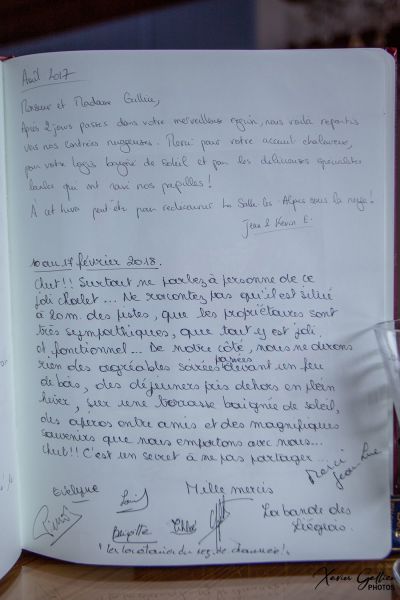 Août 2017
Monsieur et Madame Gellier,
Après 2 jours passés dans votre merveilleuse région, nous voilà repartis
vers nos contrées nuageuses. Merci pour votre accueil chaleureux,
pour votre logis baigné de soleil et pour les délicieuses spécialités
locales qui ont ravi nos papilles !
À cet hiver peut-être pour redécouvrir La Salle les Alpes sous la neige !
Jean & Kevin E.
10 au 17 février 2018.
Chut !! Surtout ne parlez à personne de ce
joli chalet... Ne racontez pas qu'il est situé
à 20 m. des pistes, que les propriétaires sont
très sympathiques, que tout y est joli
et fonctionnel... De notre côté, nous ne dirons
rien des agréables soirées passées devant un feu
de bois, des déjeuners pris dehors en plein
hiver, sur une terrasse baignée de soleil,
des apéros entre amis et des magnifiques
souvenirs que nous emportons avec nous...
Chut !! C'est un secret à ne pas partager...
Merci
Jean-Luc
Evelyne
Mille mercis
La bande des
Liégeois.
Brigitte
Chloé
"Les locataires du rez de chaussée !"
Xavier Gellier
PHOTOS